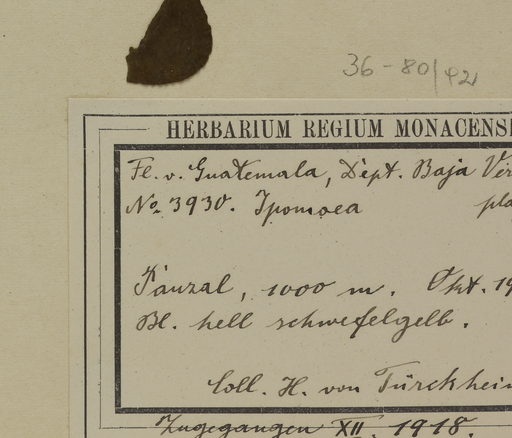 36-80/92
HERBARIUM REGIUM MONACENS
Fl. v. Guatemala, Dept. Baja Ver
No. 3930. Ipomoea pla
Panzal, 1000 m. Okt. 19
Bl. hell schwefelgelb.
Coll. H. von Türckheim
Zugegangen XII. 1918.